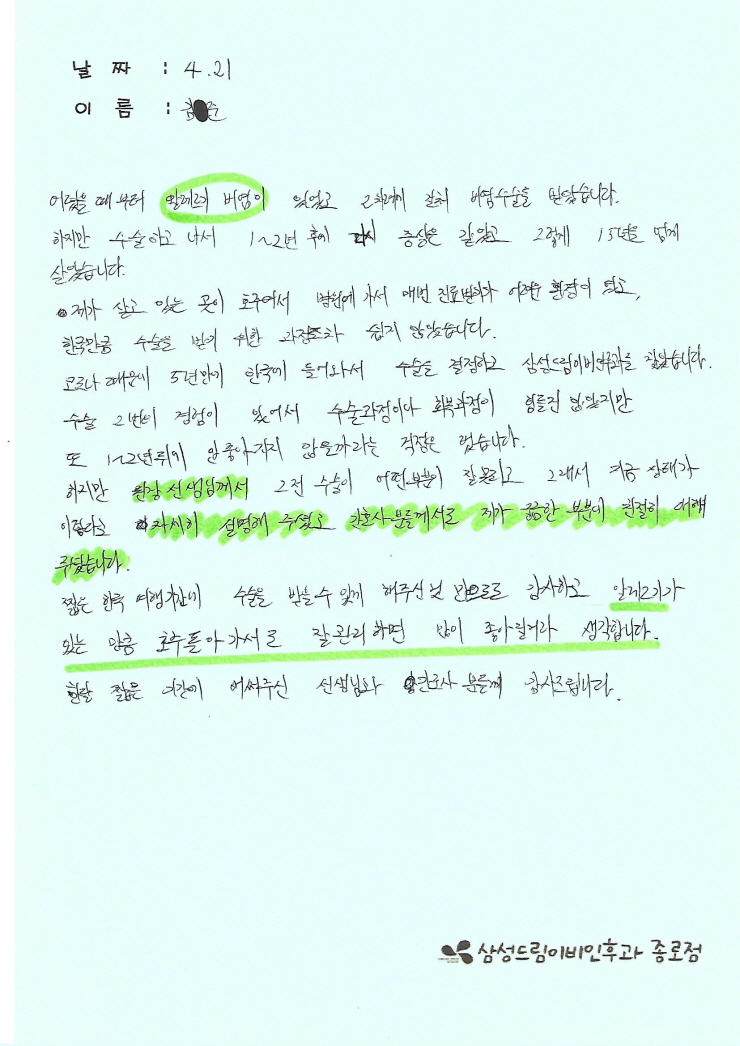 날 짜 : 4.21
이 름 : 김 준
어렸을 때부터 알레르기 비염이 있었고 2차례에 걸쳐 비염수술을 받았습니다.
하지만 수술하고 나서 1~2년 후에 다시 증상은 같았고 그렇게 15년을 넘게
살았습니다.
제가 살고 있는 곳이 호주여서 병원에 가서 매번 진료받기가 어려운 환경이 되고,
한국만큼 수술을 받기 위한 과정조차 쉽지 않았습니다.
코로나 때문에 5년만에 한국에 들어와서 수술을 결정하고 삼성드림이비인후과를 찾았습니다.
수술 2번의 경험이 있어서 수술과정이나 회복과정이 힘들진 않았지만
또 1~2년뒤에 안좋아지지 않을까라는 걱정은 했습니다.
하지만 원장선생님께서 2전 수술이 어떤부분이 잘못되고 그래서 지금 상태가
이렇다고 자세히 설명해 주셨고 간호사분들께서도 제가 궁금한 부분에 친절히 대해
주셨습니다.
짧은 한국 여행기간에 수술을 받을 수 있게 해주신것 만으로도 감사하고 알레르기가
있는 만큼 호주돌아가서도 잘관리하면 많이 좋아질거라 생각합니다.
한달 짧은 기간에 애써주신 선생님과 간호사분들께 감사드립니다.
삼성드림이비인후과 종로점